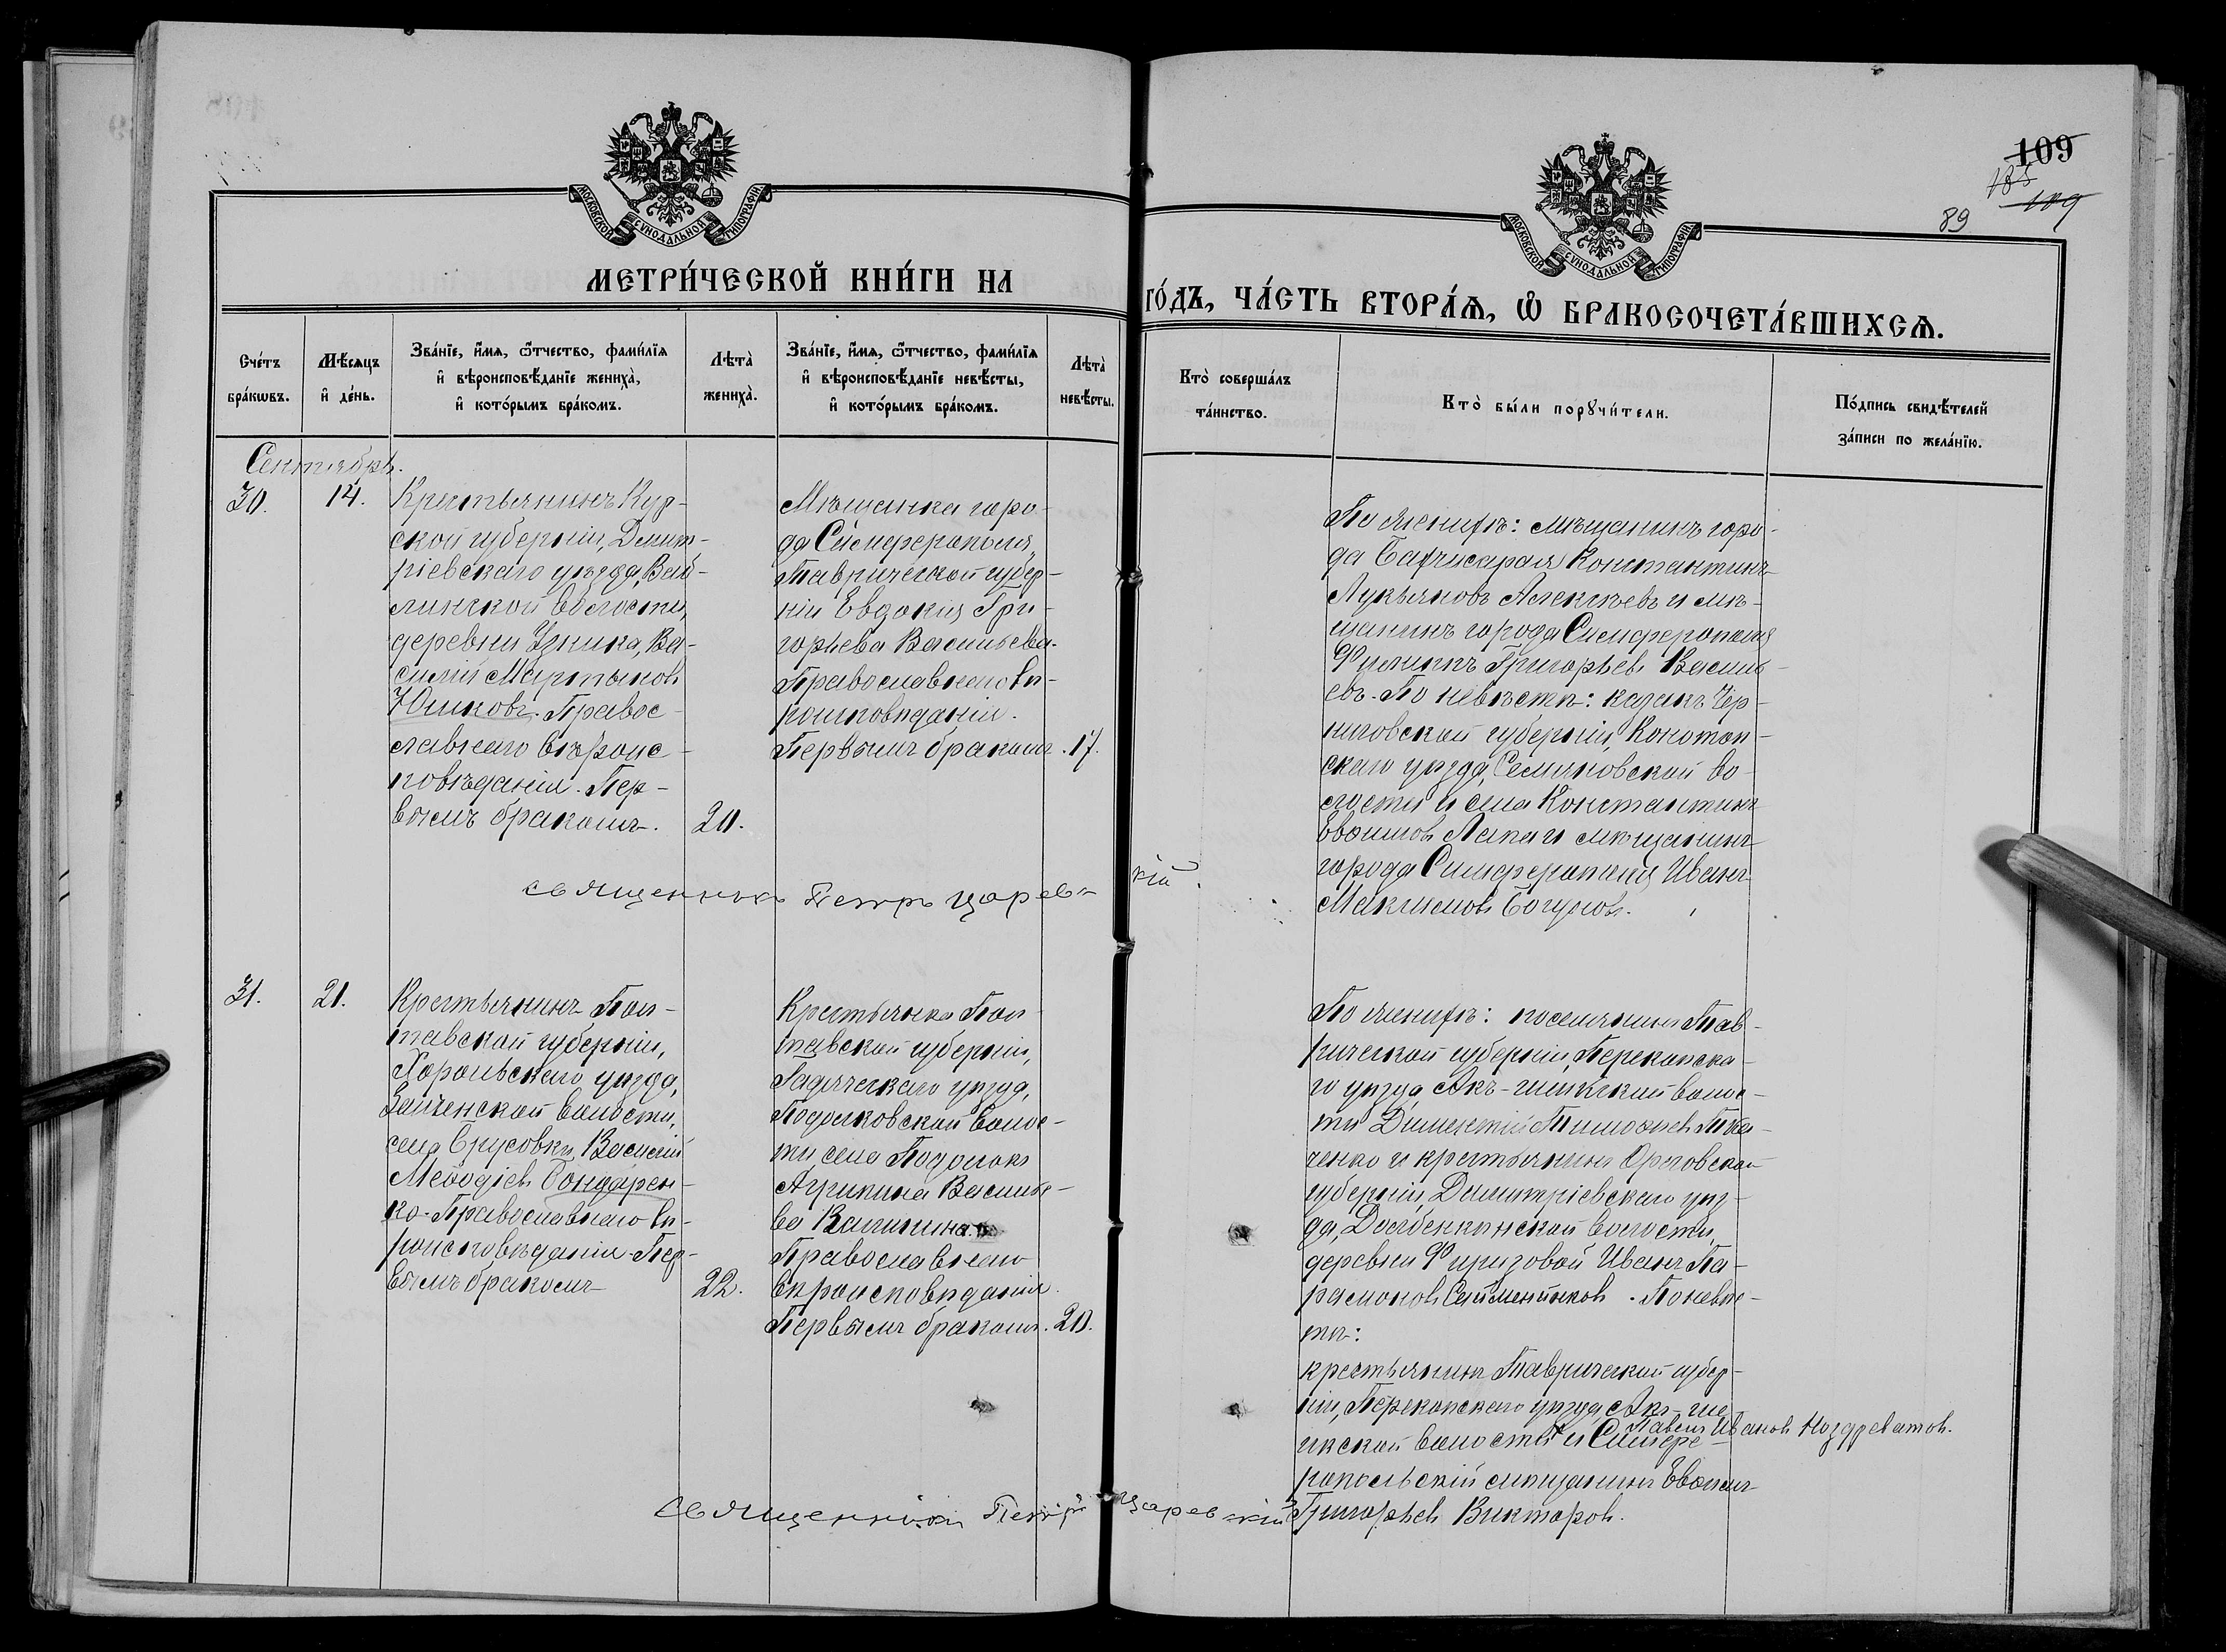 109
185
109
89
МОСКОВСКОЙ СѴНОДАЛЬНОЙ ТИПОГРАФІИ
МОСКОВСКОЙ СѴНОДАЛЬНОЙ ТИПОГРАФІИ
МЕТРИ́ЧЕСКОЙ КНИ́ГИ НА
ГО́ДЪ, ЧА́СТЬ ВТОРА́Ѧ, Ѽ БРАКОСОЧЕТА́ВШИХСѦ.
Сче́тъ
бра́кѡвъ.
Мѣ́сяцъ
и҆ де́нь.
Зва́нїе, и҆́мѧ, ѻ҆́тчество, фами́лїѧ
и҆ вѣроисповѣ́данїе жениха̀,
и҆ кото́рымъ бра́комъ.
Лѣта̀
жениха̀.
Зва́нїе, и҆́мѧ, ѻ҆́тчество, фами́лїѧ
и҆ вѣроисповѣ́данїе невѣ́сты,
и҆ кото́рымъ бра́комъ.
Лѣта̀
невѣ́сты.
Кто̀ соверша́лъ
та́инство.
Кто̀ бы́ли порꙋчи́тели.
По́дпись свидѣ́телей
за́писи по жела́нїю.
Сентябрь.
30.
14.
Крестьянинъ Кур-
ской губерніи, Дмит-
ріевскаго уѣзда,
линской волости,
деревни Узника, Ва-
силій Мартыновъ
Юшковъ. Правос-
лавнаго вѣроис-
повѣданія. Пер-
вымъ бракомъ.
20.
Мѣщанка горо-
да Симферополя,
Таврической губер-
ніи Евдокія Гри-
горьева Васильева.
Православнаго вѣ-
роисповѣданія.
Первымъ бракомъ.
17.
По женихѣ: мѣщанинъ горо-
да Бахчисарая Константинъ
Лукьяновъ Алексѣевъ и мѣ-
щанинъ города Симферополя
Филиппъ Григорьевъ Василь-
евъ. По невѣстѣ: казакъ Чер-
ниговской губерніи, Конотоп-
скаго уѣзда, Семяновской во-
лости и села Константинъ
Евѳимовъ Лапа и мѣщанинъ
города Симферополя Иванъ
Максимовъ Богуновъ.
Священникъ Петръ Царев-
кій.
31.
21.
Крестьянинъ Пол-
тавской губерніи,
Хорольскаго уѣзда,
Заиченской волости,
села Брусовки, Василій
Меѳодіевъ Бондарен-
ко. Православнаго вѣ-
роисповѣданія. Пер-
вымъ бракомъ
22.
Крестьянка Пол-
тавской губерніи,
Гадяческаго уѣзда,
Подолковской волос-
ти, села Подолокъ
Агрипина Василье-
ва Калинина.
Православнаго
вѣроисповѣданія.
Первымъ бракомъ.
20.
По женихѣ: поселянинъ Тав-
рической губерніи, Перекопска-
го уѣзда, Акъ-шикской волос-
ти Диментій Тимоѳеевъ
ченко и крестьянинъ Орловской
губерніи, Димитріевскаго уѣз-
да, Долбенкинской волости,
деревни Фиризовой Иванъ Па-
рамоновъ. По невѣс-
тѣ:
крестьянинъ Таврической губер-
ніи, Перекопскаго уѣзда Акъ-ше-
Павелъ Ивановъ Ноздреватов.
икской волости и Симфе-
ропольскій мѣщанинъ Евѳимъ
Григорьевъ Викторовъ.
Священникъ Петръ Царевскій